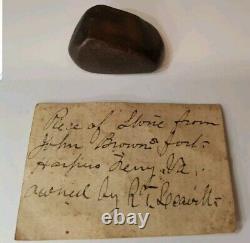 Piece of Stone from
John Brown's fort-
Harpers Ferry Va.
owned by R. L. Leavitt